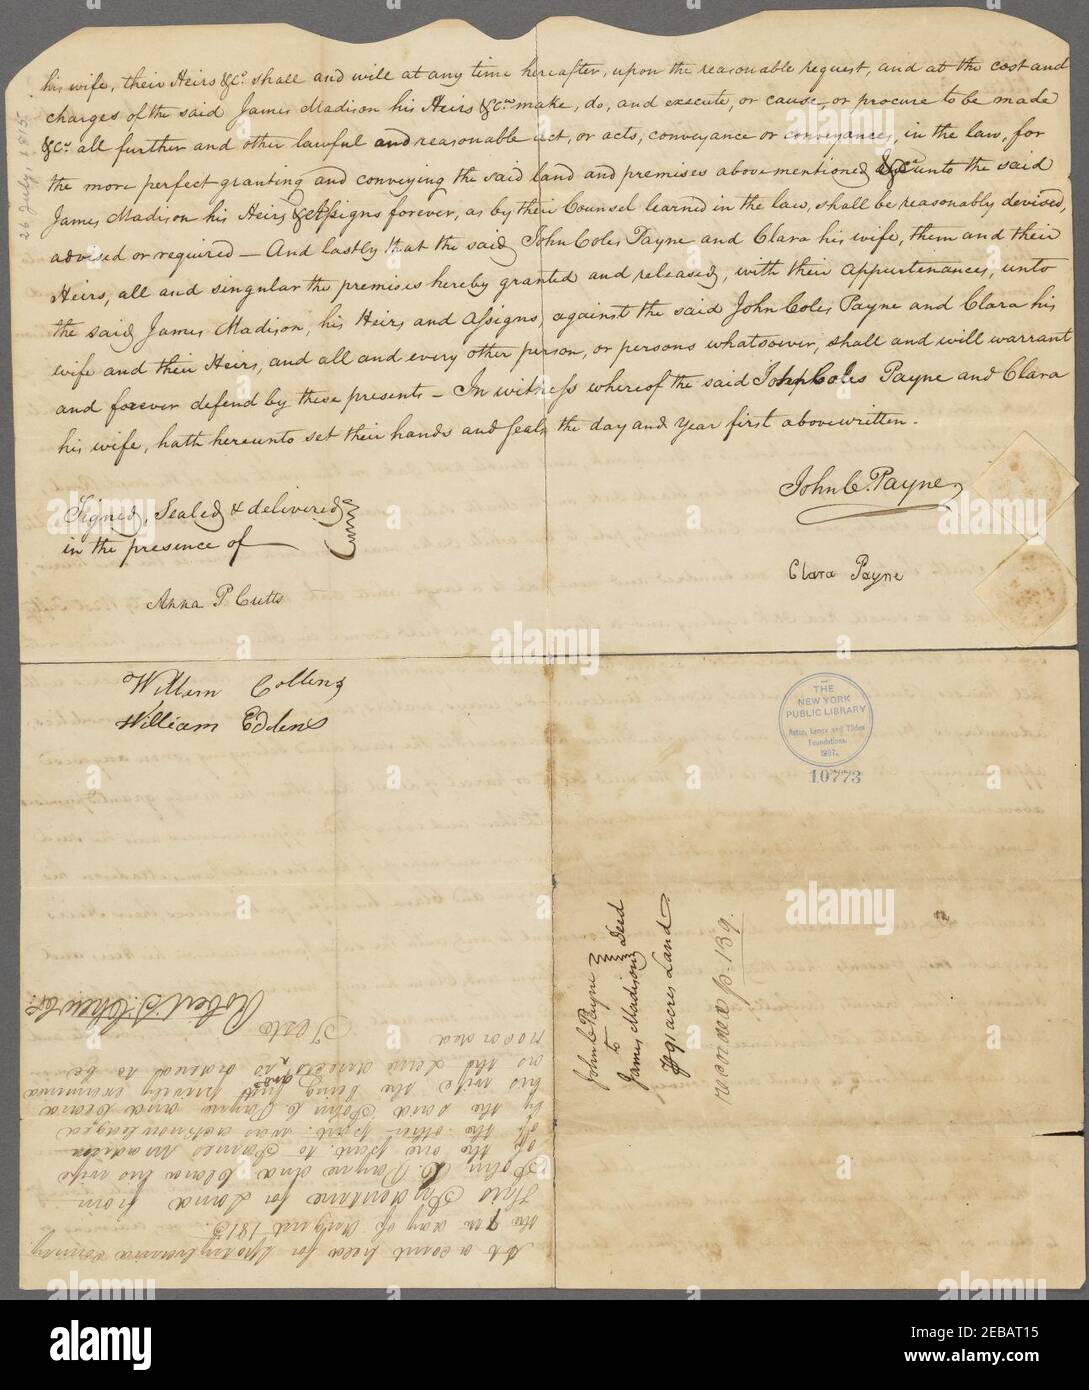 his wife, their Heirs &Cª. shall and will at any time hereafter, upon the reasonable request, and at the cost and
charges of the said James Madison his Heirs &Cª. make, do, and execute, or cause, or procure to be made
&Cª. all further and other lawful and reasonable act, or acts, conveyance or conveyances, in the law, for
the more perfect granting and conveying the said land and premises above mentioned &Cª. unto the said
James Madison his Heirs & Assigns forever, as by their Counsel learned in the law, shall be reasonably devised,
advised or required — And Lastly that the said John Coles Payne and Clara his wife, them and their
Heirs, all and singular the premises hereby granted and released, with their appurtenances, unto
the said James Madison, his Heirs and Assigns, against the said John Coles Payne and Clara his
wife and their Heirs, and all and every other person, or persons whatsoever, shall and will warrant
and forever defend by these presents — In witness whereof the said John Coles Payne and Clara
his wife, hath hereunto set their hands and seals, the day and year first above written.
26 July, 1815
John C. Payne
Signed, Sealed & delivered
in the presence of
Clara Payne
Anna P Cutts
Willem Collins
William Eddens
THE
NEW YORK
PUBLIC LIBRARY
Astor, Lenox and Tilden
Foundations.
1897.
10773
John C Payne
to Deed
James Madison
91 acres Land
recorded p. 139.
At a court held for county
the day of August 1815.
This Indenture for Land from
John C. Payne and Clara his wife
of the one part to James Madison
of the other part was acknowledged
by the said John C Payne and Clara
his wife, she being first privily examined
as the Law directs and ordered to be
recorded
Teste
Robert
alamy
Image ID: 2EBAT15
www.alamy.com